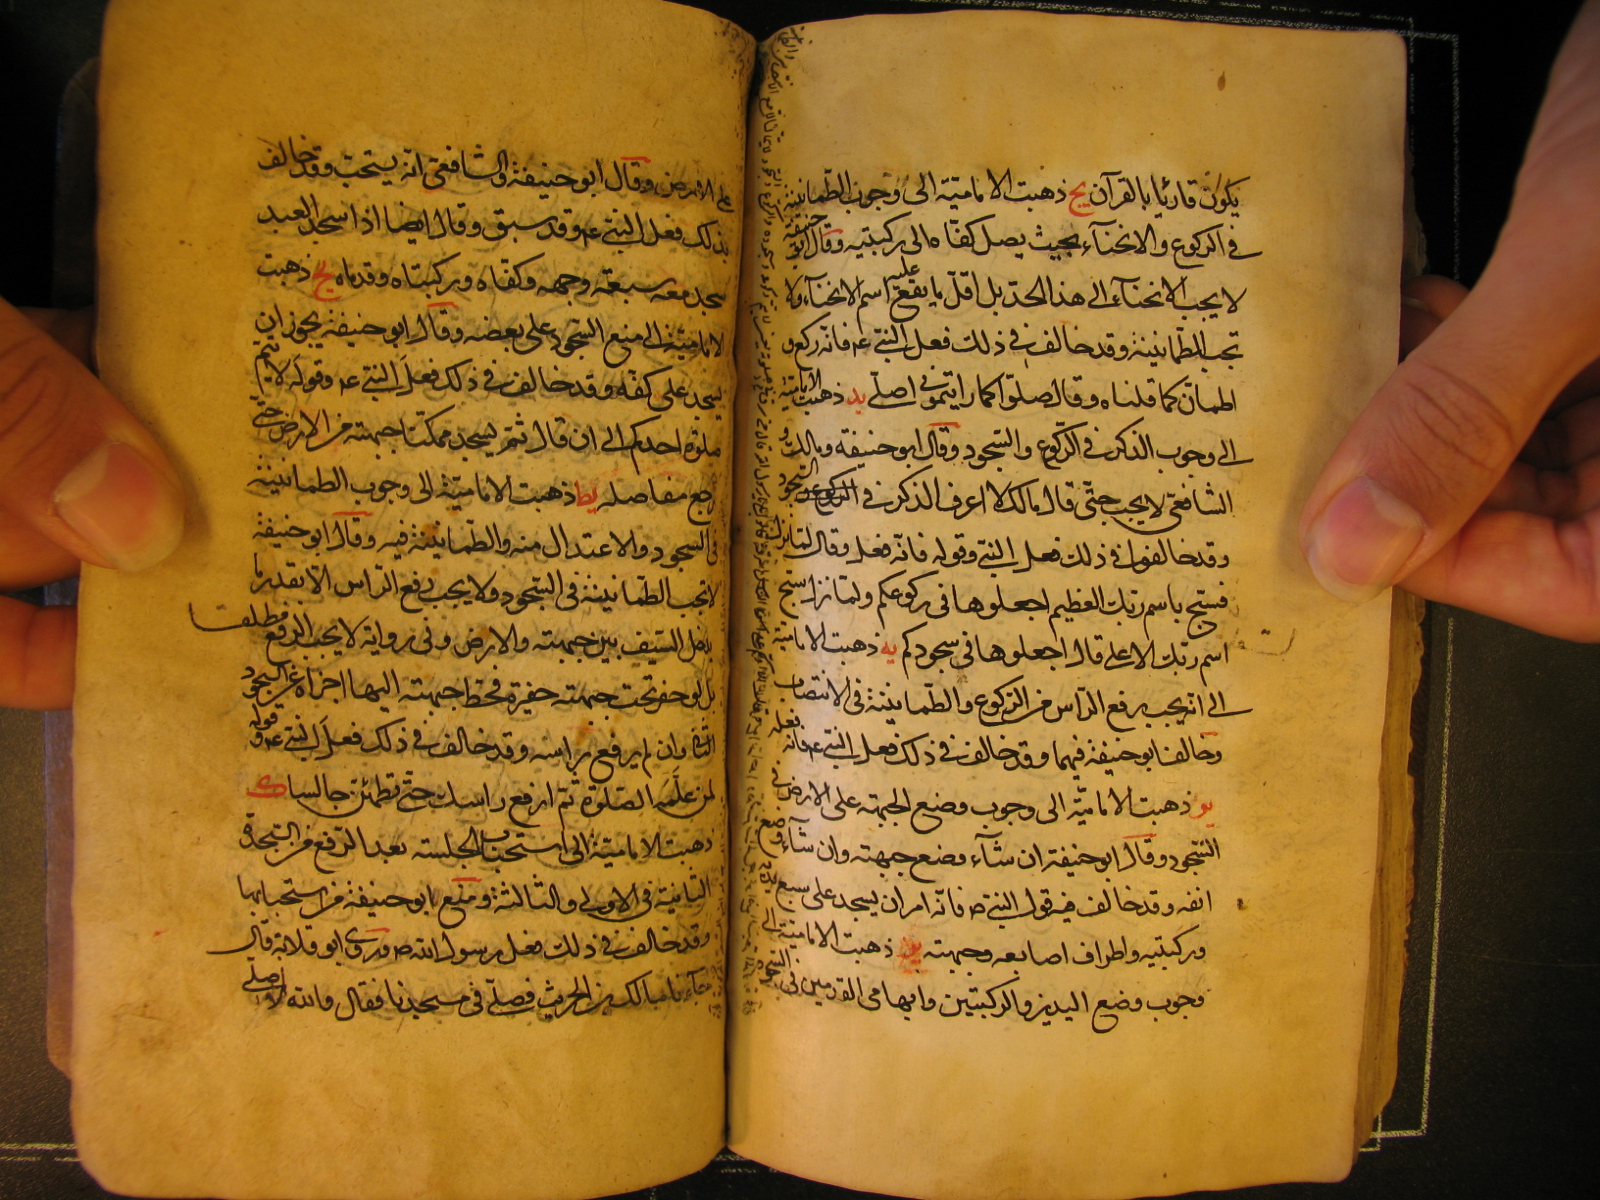 يكون قارئا بالقرآن يج ذهبت الامامية الى وجوب الطمانينة
فى الركوع والانحناء بحيث يصل كفاه الى ركبتيه وقال ابو حنيفة
لا يجب الانحناء الى هذا الحد بل اقل ما يقع عليه اسم الانحناء ولا
تجب الطمانينة وقد خالف فى ذلك فعل النبى ع فانه ركع و
اطمان كما قلناه وقال صلوا كما رايتمونى اصلى يد ذهبت الامامية
الى وجوب الذكر فى الركوع والسجود وقال ابو حنيفة ومالك و
الشافعى لا يجب حتى قال مالك لا اعرف الذكر فى الركوع و السجود
وقد خالفوا فى ذلك فعل النبى وقوله فانه فعل وقال لما نزلت
فسبح باسم ربك العظيم اجعلوها فى ركوعكم ولما نزل سبح
اسم ربك الاعلى قال اجعلوها فى سجودكم يه ذهبت الامامية
الى انه يجب رفع الراس من الركوع والطمانينة فى الانتصاب
وخالف ابو حنيفة فيهما وقد خالف فى ذلك فعل النبى ع فانه فعله
يو ذهبت الامامية الى وجوب وضع الجبهة على الارض فى
السجود وقال ابو حنيفة ان شاء وضع جبهته وان شاء وضع
انفه وقد خالف فيه قول النبى ص فانه امر ان يسجد على سبع يديه
وركبتيه واطراف اصابعه وجبهته يز ذهبت الامامية الى
وجوب وضع اليدين والركبتين وابهامى القدمين فى السجود
على الارض وقال ابو حنيفة والشافعى انه يستحب وقد خالف
بذلك فعل النبى ع وقد سبق وقال ايضا اذا سجد العبد
سجد معه سبعة وجهه وكفاه وركبتاه وقدماه يح ذهبت
الامامية الى منع السجود على بعضه وقال ابو حنيفة يجوز ان
يسجد على كفه وقد خالف فى ذلك فعل النبى ع وقوله لا يتم
صلوة احدكم الى ان قال ثم يسجد ممكنا جبهته من الارض حتى
يرجع مفاصله يط ذهبت الامامية الى وجوب الطمانينة
فى السجود والاعتدال منه والطمانينة فيه وقال ابو حنيفة
لا تجب الطمانينة فى السجود ولا يجب رفع الراس الا بقدر ما
يدخل السيف بين جبهته والارض وفى رواية لا يجب الرفع مطلقا
بل لو حفر تحت جبهته حفيرة فحط جبهته اليها اجزاه عن السجود
الثانى وان لم يرفع راسه وقد خالف فى ذلك فعل النبى ع و قوله
لمن علمه الصلوة ثم ارفع راسك حتى تطمئن جالسا ك
ذهبت الامامية الى استحباب الجلسة بعد الرفع من السجدة
الثانية فى الاولى والثالثة ومنع ابو حنيفة من استحبابها
وقد خالف فى ذلك فعل رسول الله ص وروى ابو قلابة قال
جاءنا مالك بن الحريث فصلى فى مسجدنا فقال والله لا اصلى